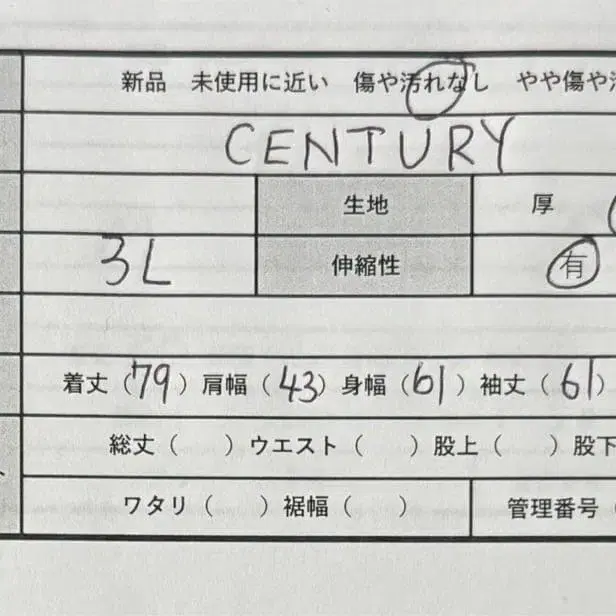 新品 未使用に近い 傷や汚れなし やや傷や汚
CENTURY
生地 厚
3L 伸縮性 有
着丈（79）肩幅（43）身幅（61）袖丈（61）
総丈（　）ウエスト（　）股上（　）股下
ワタリ（　）裾幅（　） 管理番号（